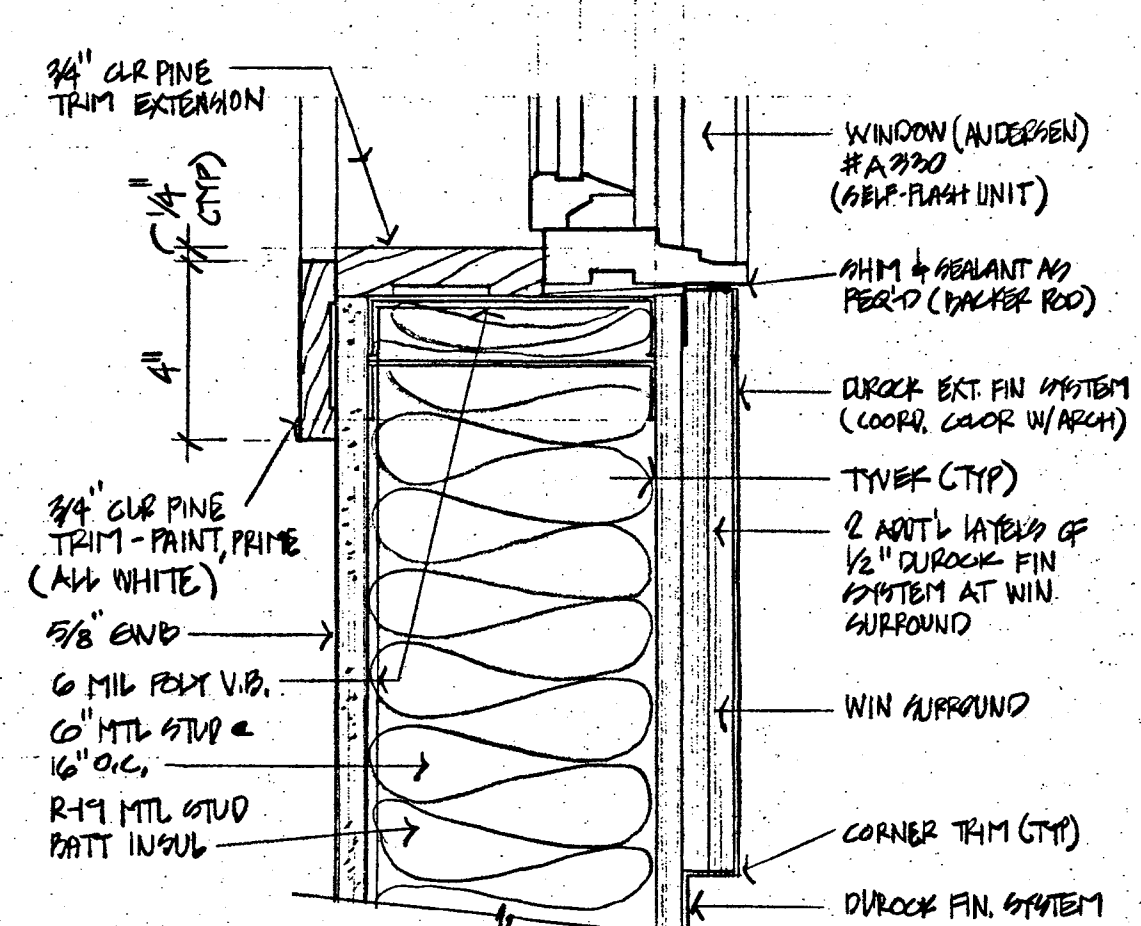 3/4" CLR PINE
TRIM EXTENSION
1/4"
(TYP)
4"
3/4" CLR PINE
TRIM - PAINT, PRIME
(ALL WHITE)
5/8" GWB
6 MIL POLY V.B.
6" MTL STUD @
16" O.C.
R-19 MTL STUD
BATT INSUL
WINDOW (ANDERSEN)
#A330
(SELF-FLASH UNIT)
SHIM & SEALANT AS
REQ'D (BACKER ROD)
DUROCK EXT. FIN SYSTEM
(COORD. COLOR W/ARCH)
TYVEK (TYP)
2 ADDT'L LAYERS OF
1/2" DUROCK FIN
SYSTEM AT WIN
SURROUND
WIN SURROUND
CORNER TRIM (TYP)
DUROCK FIN. SYSTEM